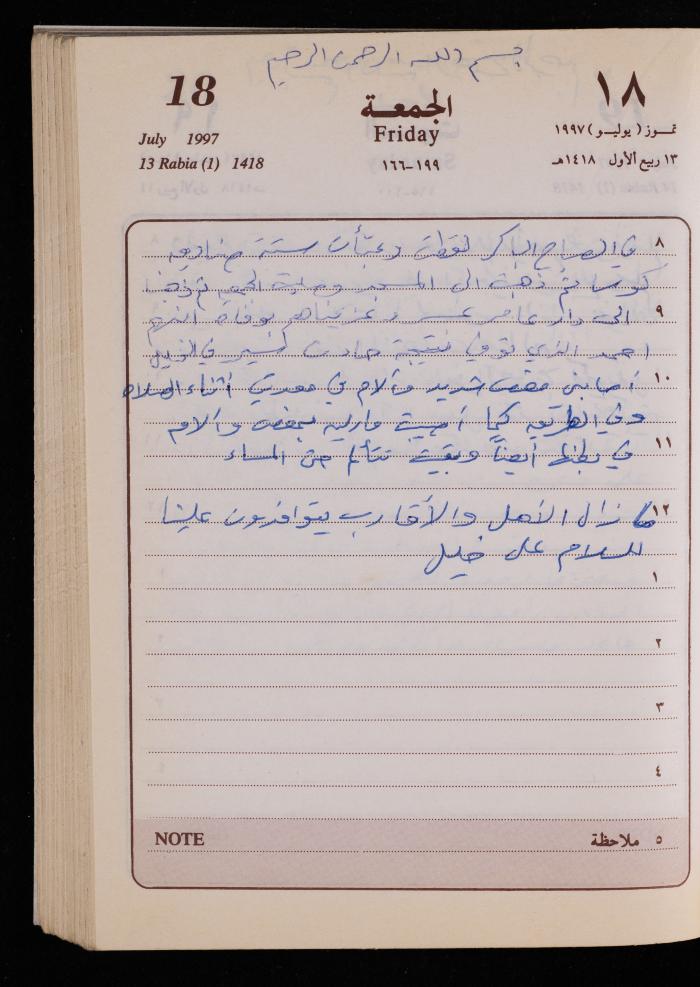 بسم الله الرحمن الرحيم
18
الجمعة
١٨
July 1997
Friday
تمـوز (يوليـو) ١٩٩٧
13 Rabia (1) 1418
١٩٩-١٦٦
١٣ ربيع الأول ١٤١٨هـ
٨
في الصباح الباكر لقطت وعبأت ستة صناديق
كوسا ثم ذهبت الى المسجد وصليت الجمعة ثم ذهبنا
٩
الى دار عامر وعزيناهم بوفاة ابنهم
احمد الذي توفي نتيجة حادث سير في
١٠
أصابني مغص شديد وآلام في معدتي أثناء الصلاة
وفي الطريق كما أصيبت ماريه بمغص وآلام
١١
في بطنها أيضاً وبقيت تتألم حتى المساء
١٢
ما زال الأهل والأقارب يتوافدون علينا
للسلام على خليل
١
٢
٣
٤
NOTE
٥ ملاحظة